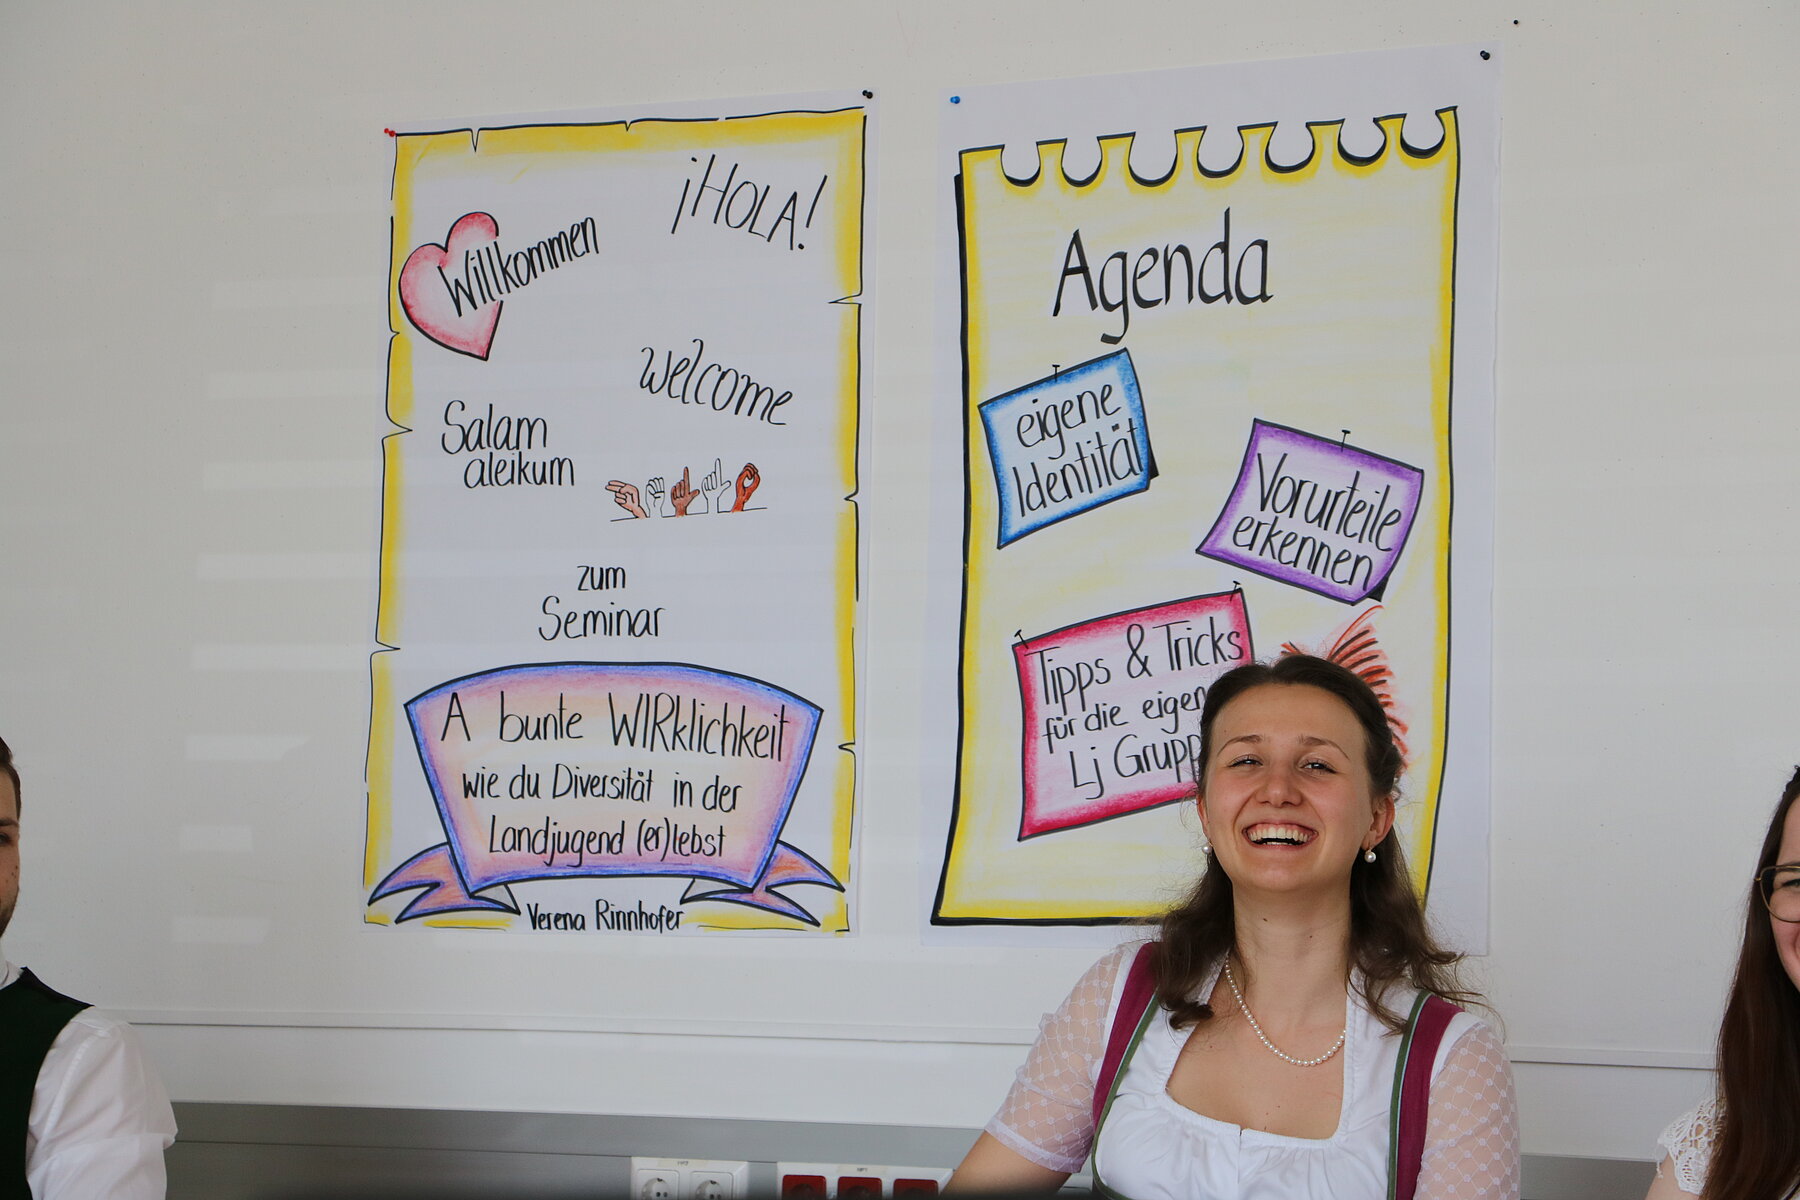 ¡HOLA!
Willkommen
Welcome
Salam
aleikum
zum
Seminar
A bunte WIRklichkeit
wie du Diversität in der
Landjugend (er)lebst
Verena Rinnhofer
Agenda
eigene
Identität
Vorurteile
erkennen
Tipps & Tricks
für die eigen
Lj Grupp